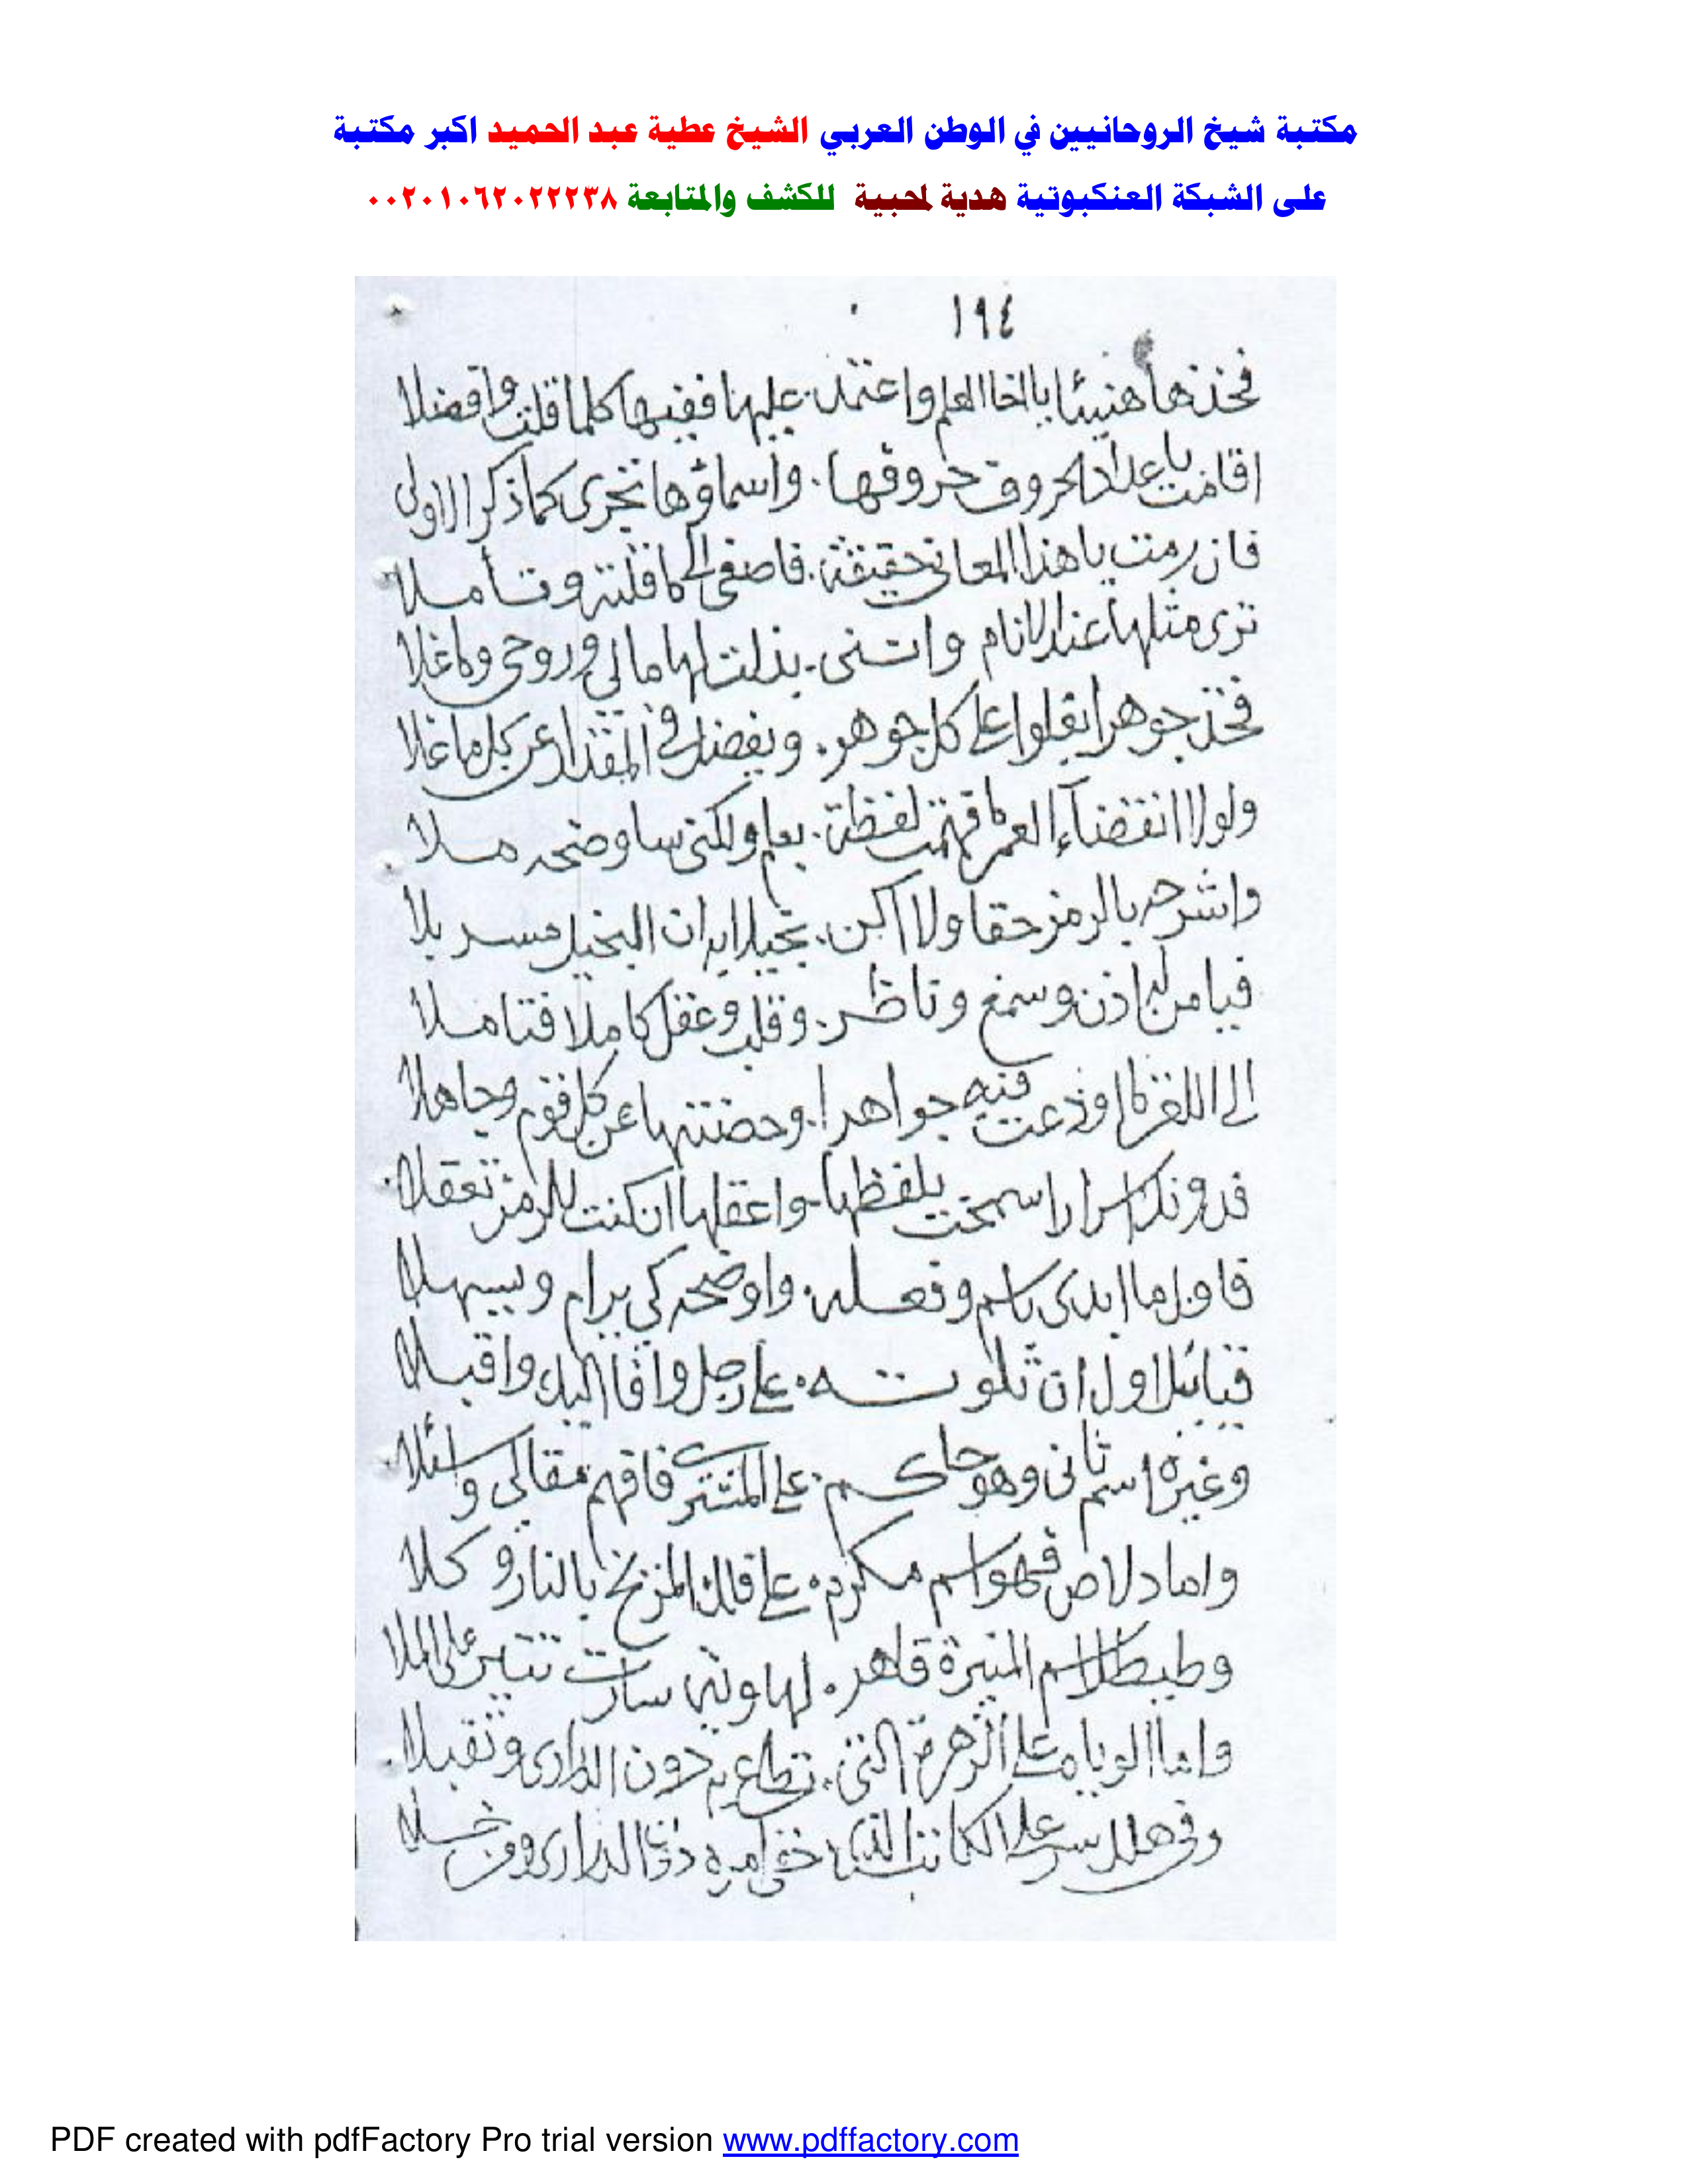 مكتبة شيخ الروحانيين في الوطن العربي الشيخ عطية عبد الحميد اكبر مكتبة
على الشبكة العنكبوتية هدية لمحبية للكشف والمتابعة ٠٠٢٠١٠٦٢٠٢٢٢٣٨
١٩٤
فخذها هنيئا يا اخا العلم واعتمد عليها ففيها كلما قلت وافضلا
اقامت باعداد الحروف حروفها . واسماؤها تجرى كما ذكر الاولى
فان رمت يا هذا المعانى حقيقة . فاصغى الى ما قلته وتأملا
ترى مثلها عند الانام واتنى . بذلت لها مالى وروحى وما غلا
فخذ جوهرا يغلوا على كل جوهر . ويفضل فى المقدار عن كل ما غلا
ولولا انقضاء العمر ما فهمت لفظة . بعلم ولكنى ساوضحه ملا
واشرحه بالرمز حقا ولا اكن . بخيلا به ان البخيل مسربلا
فيا من له اذن وسمع وناظر . وقلب وعقل كاملا فتاملا
الى اللغز ما اودعت فيه جواهرا . وحضنتها عن كل فدم وجاهلا
فدونك اسرارا سمحت بلفظها . واعقلها ان كنت للرمز تعقلا
فاول ما ابدى باسم وفعله . واوضحه كى يرام ويسهلا
قبائلا اول ان تلوته . على رجل وافا اليك واقبلا
وغيره اسم ثانى وهو حاكم . على المشترى فافهم مقالى واسئلا
واما دلاص فهو اسم مكرم . على فلك المريخ بالنار وكلا
وطيطلا اسم المنيرة قاهر . لها وبه سارت تنير على الملا
واما الويا على الزهرة التى . تطلع به دون الدرارى وتقبلا
وفى هلل سر على الكاتب الذى خفى امره دون الدرارى
PDF created with pdfFactory Pro trial version www.pdffactory.com